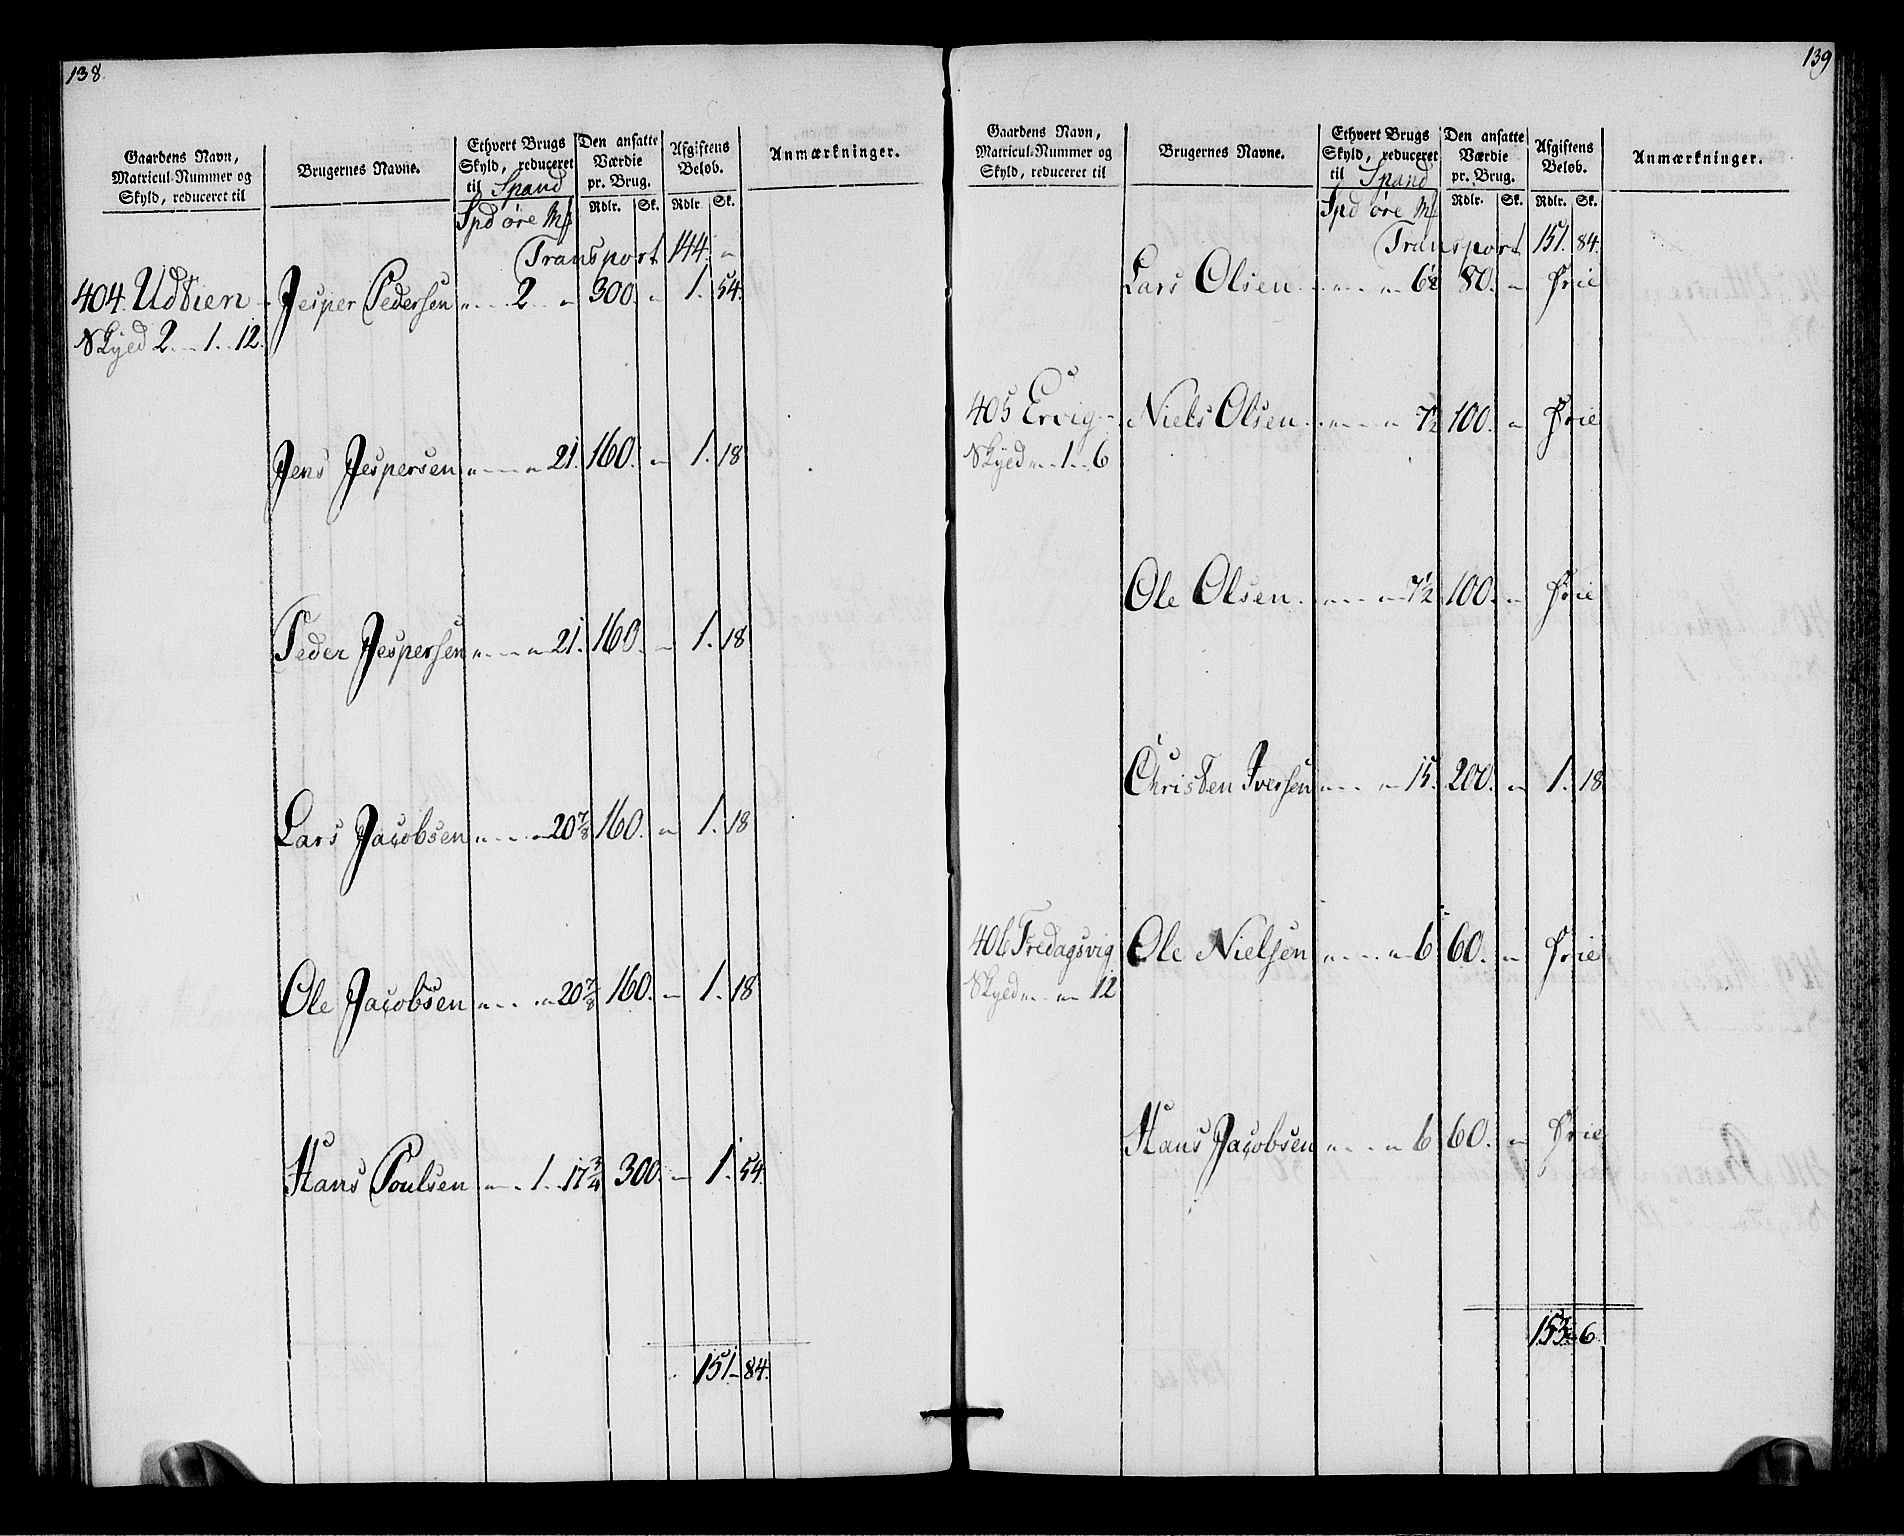 138
Gaardens Navn, Matricul-Nummer og Skyld, reduceret til
Brugernes Navne.
Ethvert Brugs Skyld, reduceret til Spand
Spd öre Mk
Den ansatte Værdie pr. Brug.
Rdlr. Sk.
Afgiftens Beløb.
Rdlr. Sk.
Anmærkninger.
Transport 144. "
404. Udtien Jesper Pedersen " 2 " 300. " 1. 54.
Skyld 2 " 1 " 12.
Jens Jespersen " " 21. 160. " 1. 18
Peder Jespersen " " 21. 160. " 1. 18
Lars Jacobsen " " 20 7/8 160. " 1. 18
Ole Jacobsen " " 20 7/8 160. " 1. 18
Hans Poulsen " 1. 17 3/4 300. " 1. 54
151 - 84.
139
Gaardens Navn, Matricul-Nummer og Skyld, reduceret til
Brugernes Navne.
Ethvert Brugs Skyld, reduceret til Spand
Spd öre Mk
Den ansatte Værdie pr. Brug.
Rdlr. Sk.
Afgiftens Beløb.
Rdlr. Sk.
Anmærkninger.
Transport 151. 84.
Lars Olsen " " 6 1/2 80. " Frie
405 Ervig Niels Olsen " " 7 1/2 100. " Frie
Skyld " 1 " 6
Ole Olsen " " 7 1/2 100. " Frie
Christen Iversen " " 15. 200. " 1. 18
406 Fredagsvig Ole Nielsen " " 6 60. " Frie
Skyld " " 12
Hans Jacobsen " " 6 60. " Frie
153 - 6